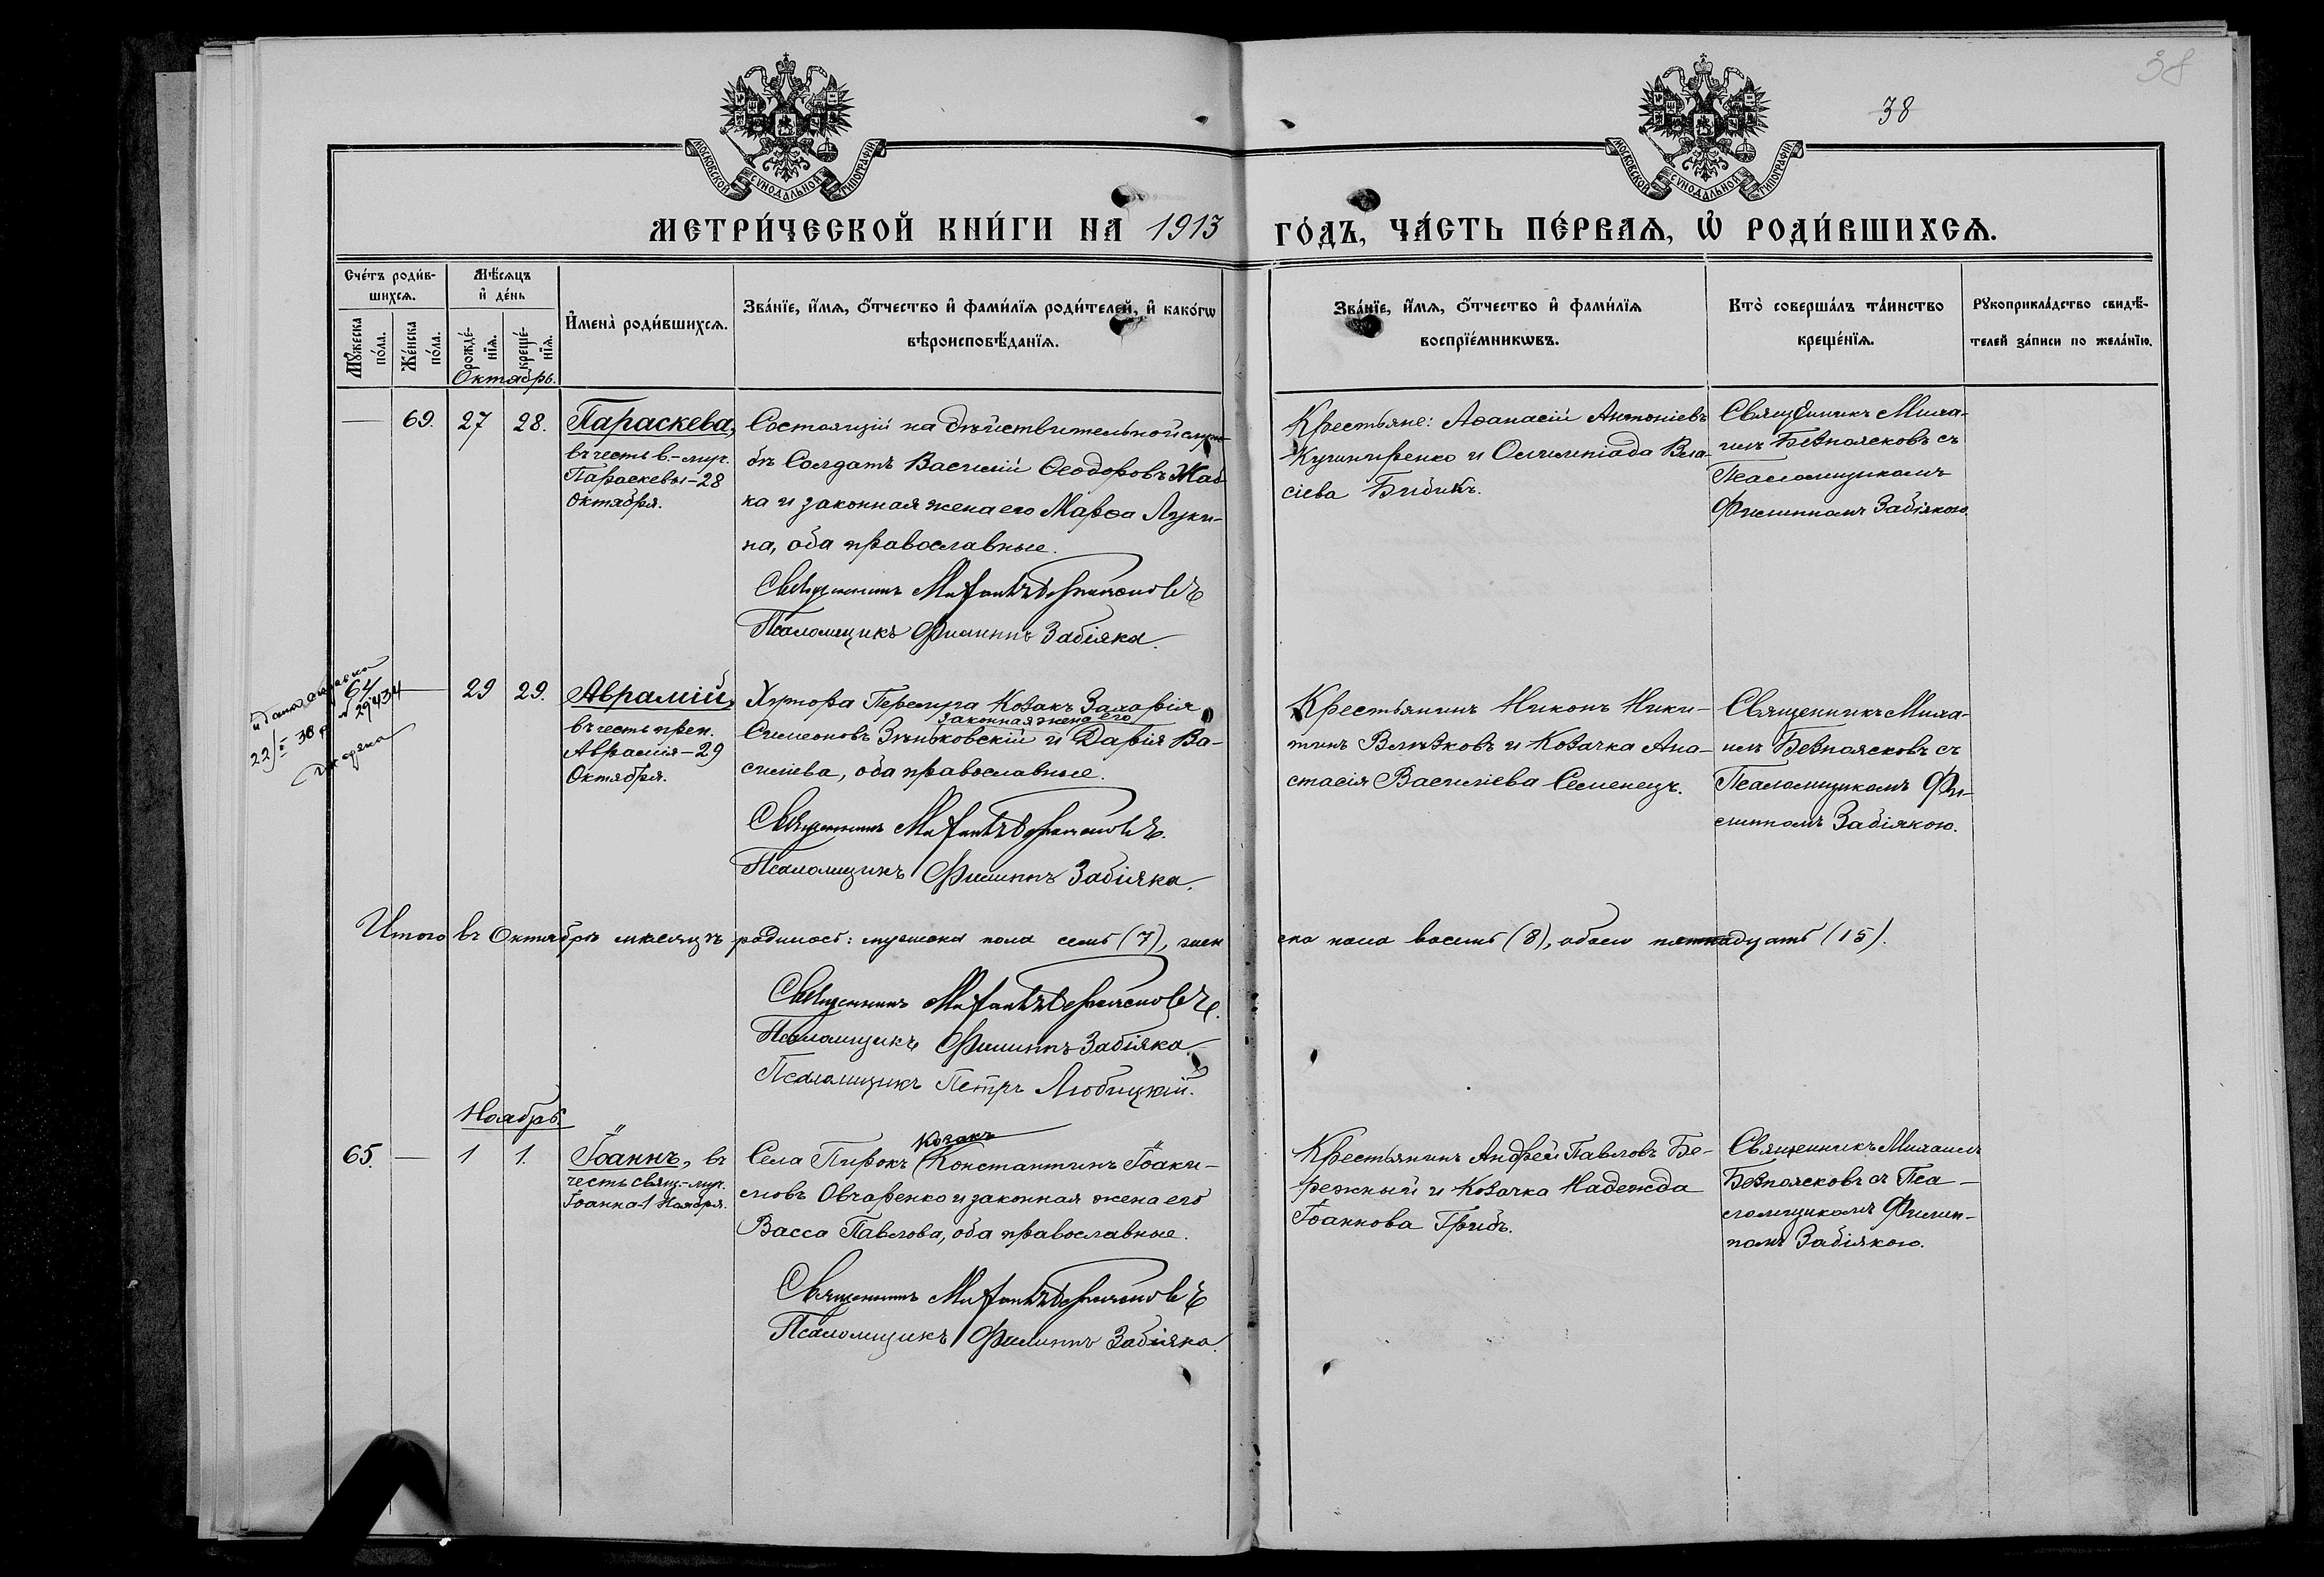 38
38
МОСКОВСКОЙ СѴНОДАЛЬНОЙ ТИПОГРАФІИ
МОСКОВСКОЙ СѴНОДАЛЬНОЙ ТИПОГРАФІИ
МЕТРИ́ЧЕСКОЙ КНИ́ГИ НА 1913 ГО́ДЪ, ЧА́СТЬ ПЕ́РВАѦ, Ѡ҆ РОДИ́ВШИХСѦ.
Сче́тъ роди́в-
шихсѧ.
Мꙋ́жеска по́ла.
Же́нска по́ла.
Мѣ́сѧцъ
и҆ де́нь
рожде́-
нїѧ.
креще́-
нїѧ.
И҆мена̀ роди́вшихсѧ.
Зва́нїе, и҆́мѧ, ѻ҆́тчество и҆ фами́лїѧ роди́телей, и҆ како́гѡ
вѣроисповѣ́данїѧ.
Зва́нїе, и҆́мѧ, ѻ҆́тчество и҆ фами́лїѧ
воспрїе́мникѡвъ.
Кто̀ соверша́лъ та́инство
креще́нїѧ.
Рꙋкоприкла́дство свидѣ́-
телей за́писи по жела́нїю.
Октябрь.
— 69. 27 28.
Параскева,
въ честь в.-муч.
Параскевы - 28
Октября.
Состоящій на дѣйствительной служ-
бѣ Солдатъ Василій Ѳеодоровъ Жаб-
ка и законная жена его Марѳа Луки-
на, оба православные.
Священникъ Михаилъ Безпоясковъ
Псаломщикъ Филиппъ Забіяка.
Крестьяне: Аѳанасій Антоніевъ
Кушниренко и Олимпіада Вла-
сіева Бибикъ.
Священникъ Миха-
илъ Безпоясковъ съ
Псаломщикомъ
Филиппомъ Забіякою.
64 — 29 29.
22/ 38 р. № 29434
Аврамій,
въ честь преп.
Аврамія - 29
Октября.
Хутора Козакъ Захарія
законная жена его
Симеоновъ Зѣньковскій и Дарія Ва-
силіева, оба православные.
Священникъ Михаилъ Безпоясковъ.
Псаломщикъ Филиппъ Забіяка.
Крестьянинъ Никонъ Ники-
тинъ и Козачка Ана-
стасія Василіева Семенецъ.
Священникъ Миха-
илъ Безпоясковъ съ
Псаломщикомъ Фи-
липпомъ Забіякою.
Итого въ Октябрѣ мѣсяцѣ родилось: мужеска пола семь (7), жен
ска пола восемь (8), обоего пятнадцать (15).
Священникъ Михаилъ Безпоясковъ.
Псаломщикъ Филиппъ Забіяка.
Псаломщикъ Петръ Любицкій.
Ноябрь.
65. — 1 1.
Іоаннъ, въ
честь свящ.-муч.
Іоанна - 1 Ноября.
Козакъ
Села Пирокъ Константинъ Іоаки-
мовъ Овчаренко и законная жена его
Васса Павлова, оба православные.
Священникъ Михаилъ Безпоясковъ
Псаломщикъ Филиппъ Забіяка.
Крестьянинъ Андрей Павловъ Бе-
режный и Козачка Надежда
Іоаннова Грибъ.
Священникъ Михаилъ
Безпоясковъ съ Пса-
ломщикомъ Филип-
помъ Забіякою.